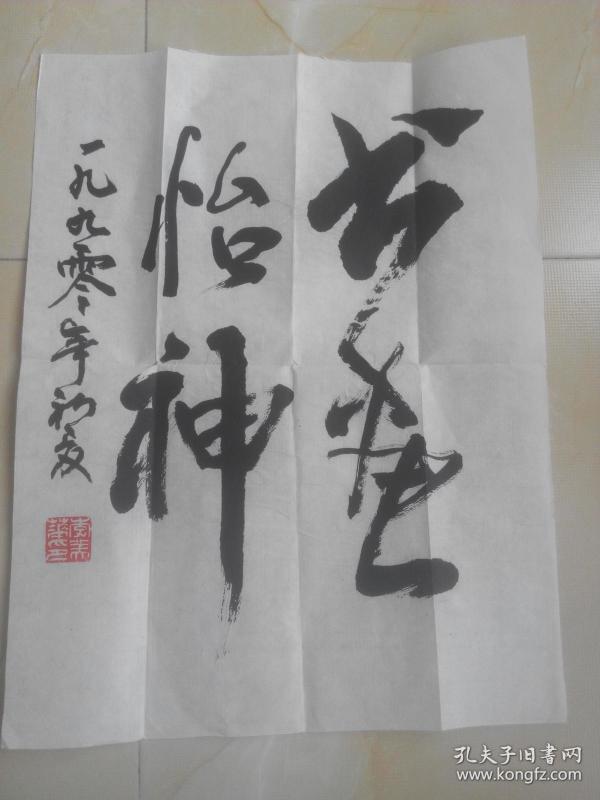 书画
怡神
一九九零年初夏
孔夫子旧書网
www.kongfz.com